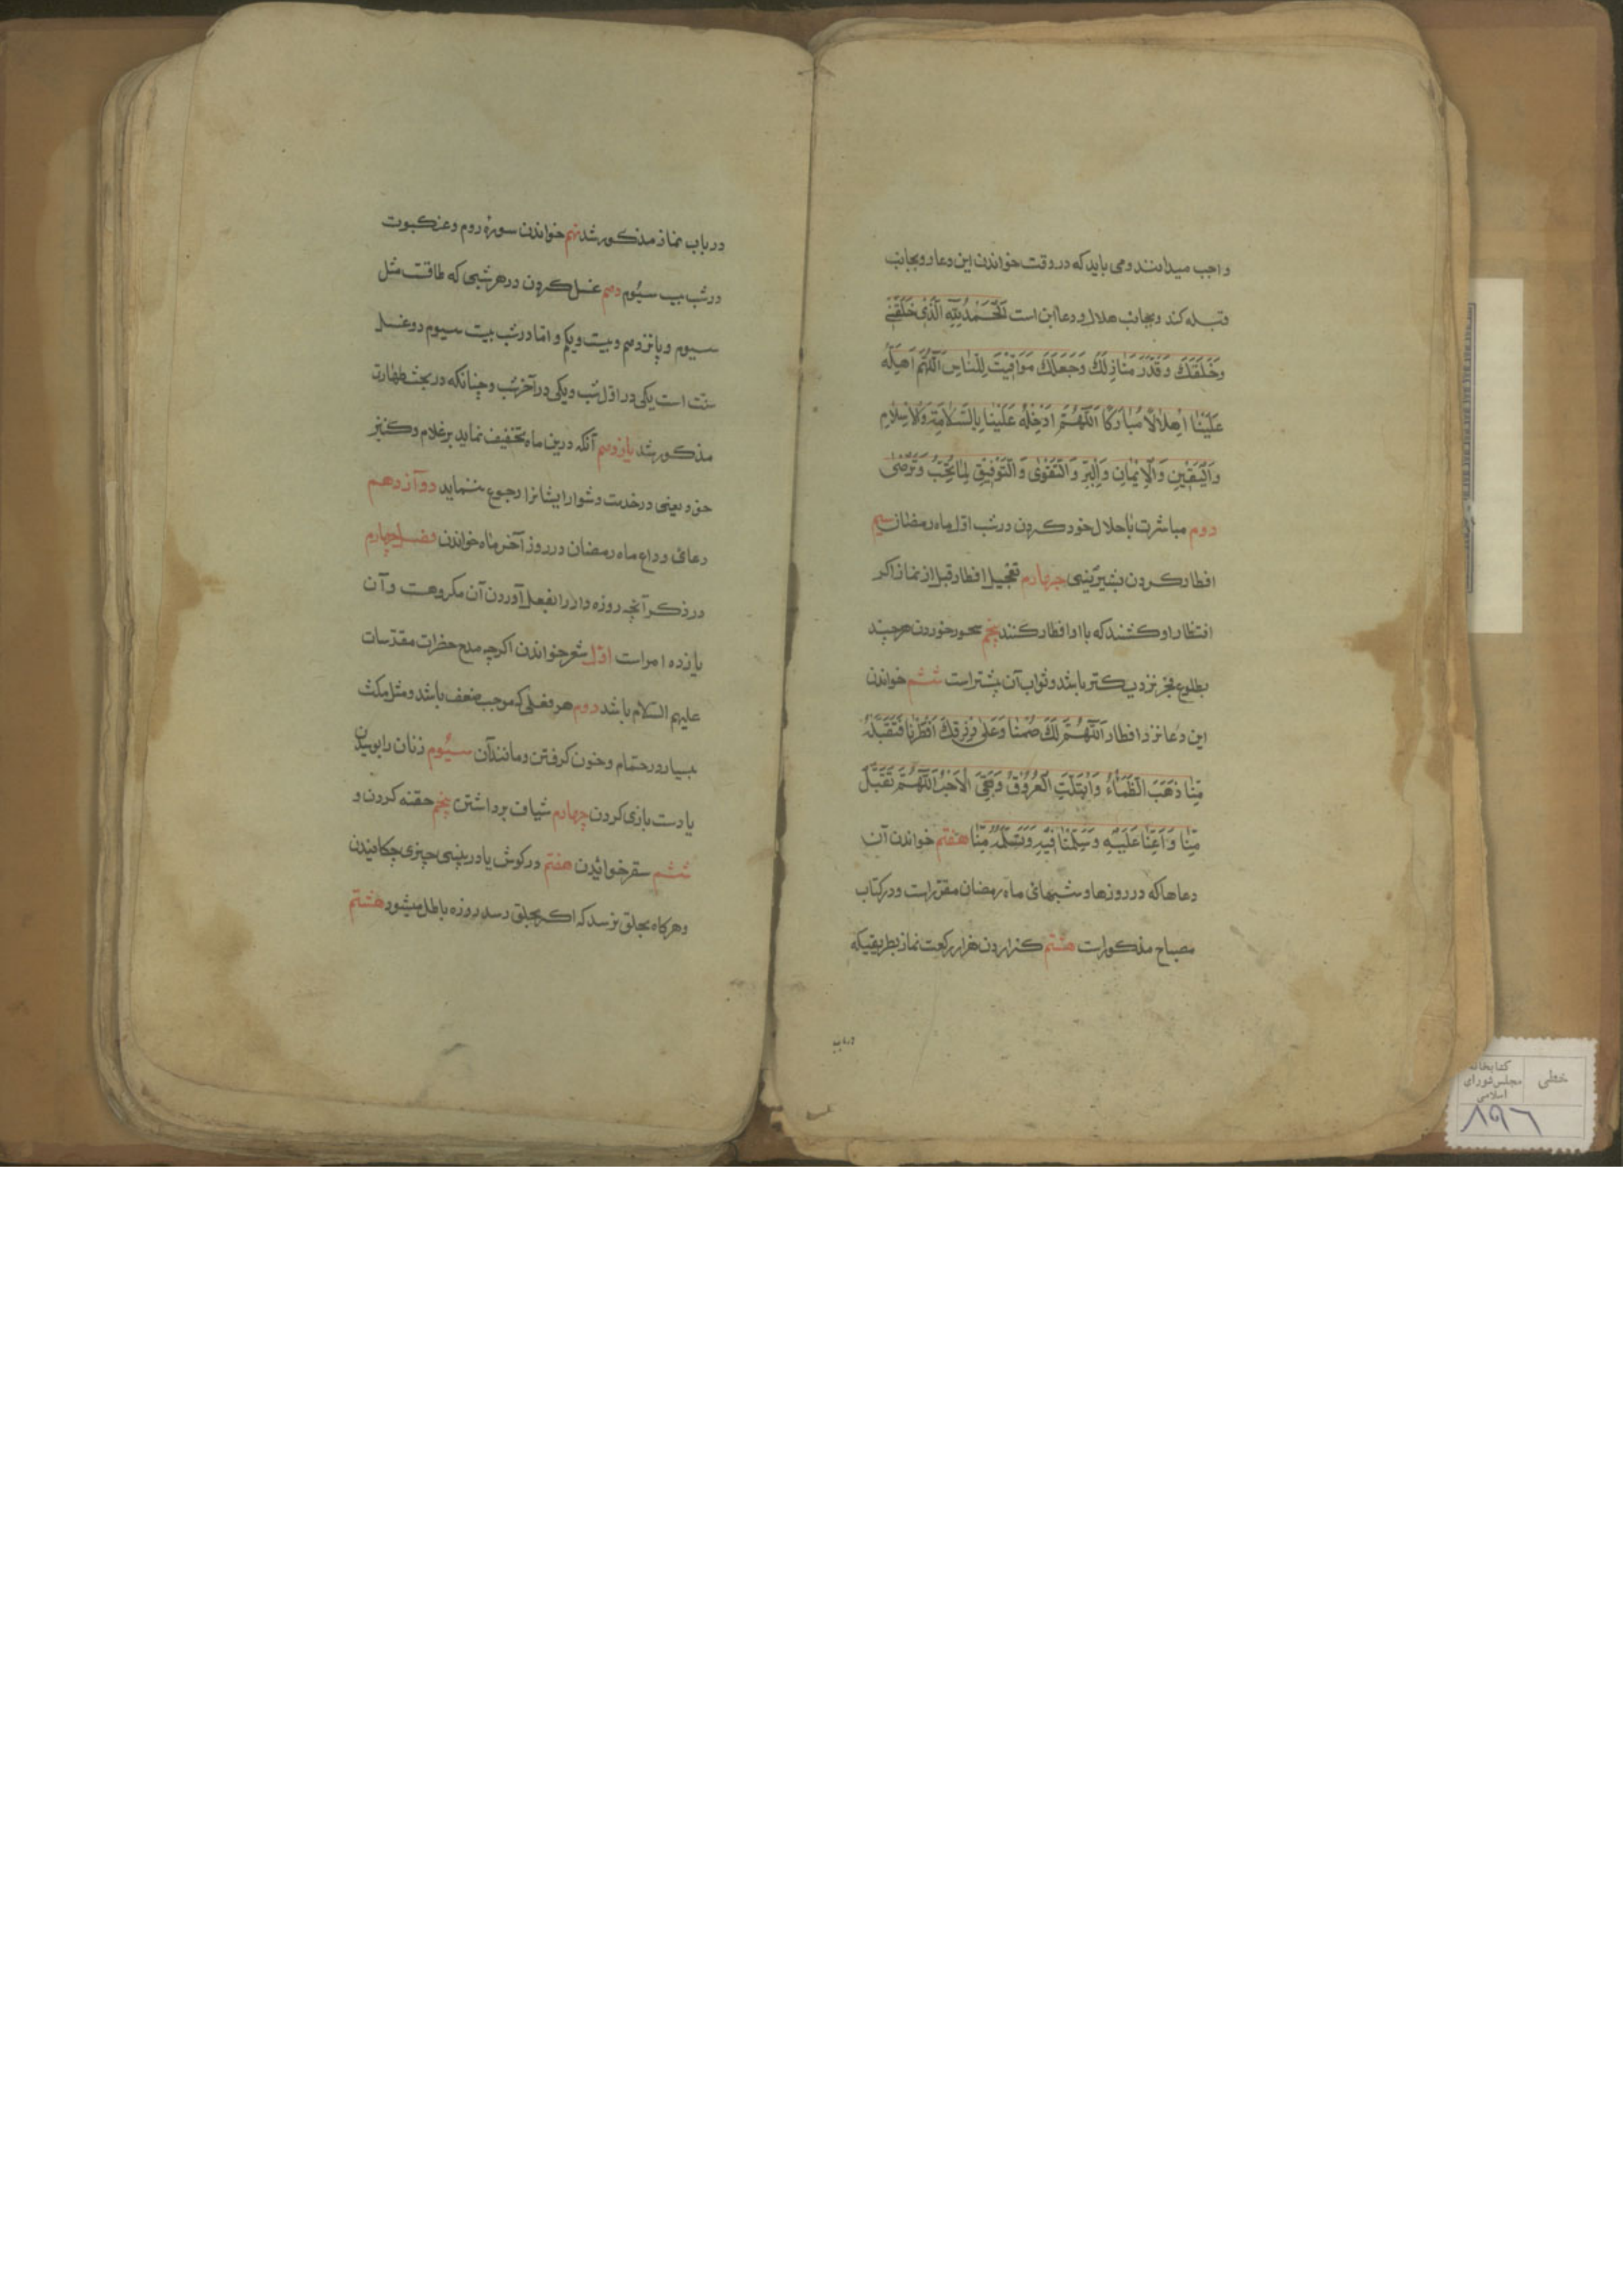 واجب میدانند و می باید که در وقت خواندن این دعا رو بجانب
قبله کند و بجانب هلال و دعا این است اَلْحَمْدُ لِلّهِ الَّذی خَلَقَنی
وَخَلَقَكَ وَقَدَّرَ مَنازِلَكَ وَجَعَلَكَ مَوَاقیتَ لِلنّاسِ اَللّهُمَّ اَهِلَّهُ
عَلَیْنا اِهلالًا مُبارَکًا اَللّهُمَّ اَدْخِلْهُ عَلَیْنا بِالسَّلامَةِ وَالْاِسْلامِ
وَالْیَقینِ وَالْاِیْمانِ وَالْبِرِّ وَالتَّقْوی وَالتَّوْفیقِ لِما تُحِبُّ وَتَرْضی
دوم مباشرت با حلال خود کردن در شب اول ماه رمضان سیم
افطار کردن بشیرینی چهارم تعجیل افطار قبل از نماز اکر
انتظار او کشند که با او افطار کنند پنجم سحور خوردن هر چند
بطلوع فجر نزدیکتر باشد و ثواب آن بیشتر است ششم خواندن
این دعا نزد افطار اَللّهُمَّ لَكَ صُمْنا وَعَلی رِزْقِكَ اَفْطَرْنا فَتَقَبَّلْهُ
مِنّا ذَهَبَ الظَّمَاءُ وَابْتَلَّتِ الْعُرُوْقُ وَبَقِیَ الْاَجْرُ اَللّهُمَّ تَقَبَّلْ
مِنّا وَاَعِنّا عَلَیْهِ وَسَلِّمْنا فیْهِ وَتَسَلَّمْهُ مِنّا هفتم خواندن آن
دعاها که در روزها و شبهائی ماه رمضان مقرر است و در کتاب
مصباح مذکور است هشتم کزاردن هزار رکعت نماز بطریقیکه
درباب
در باب نماز مذکور شد نهم خواندن سورۀ روم و عنکبوت
در شب بیست سیُوم دهم غسل کردن در هر شبی که طاقست مثل
سیوم و پانزدهم و بیست و یکم و اما در شب بیست سیوم دو غسل
سنّت است یکی در اول شب و یکی در آخر شب و چنانکه در بحث طهارت
مذکور شد یازدهم آنکه درین ماه تخفیف نماید بر غلام و کنیز
خود یعنی در خدمت دشوار ایشانرا رجوع ننماید دوآزدهم
دعائی وداع ماه رمضان در روز آخر ماه خواندن فصل چهارم
در ذکر آنچه روزه دار را بفعل آوردن آن مکروهست و آن
یازده امر است اوّل شعر خواندن اکرچه مدح حضرات مقدّسات
علیهم السّلام باشد دوم هر فعلی که موجب ضعف باشد و مثل مکث
بسیار در حمّام و خون کرفتن و مانند آن سیُوم زنان را بوسیدن
یا دست بازی کردن چهارم شیاف برداشتن پنجم حقنه کردن و
ششم سقز خوائیدن هفتم در کوش یا در بینی چیزی چکانیدن
و هرکاه بحلق نرسد که اکر بحلق رسد روزه باطل میشود هشتم
خطی
کتابخانه
مجلس شورای
اسلامی
۸۹۶